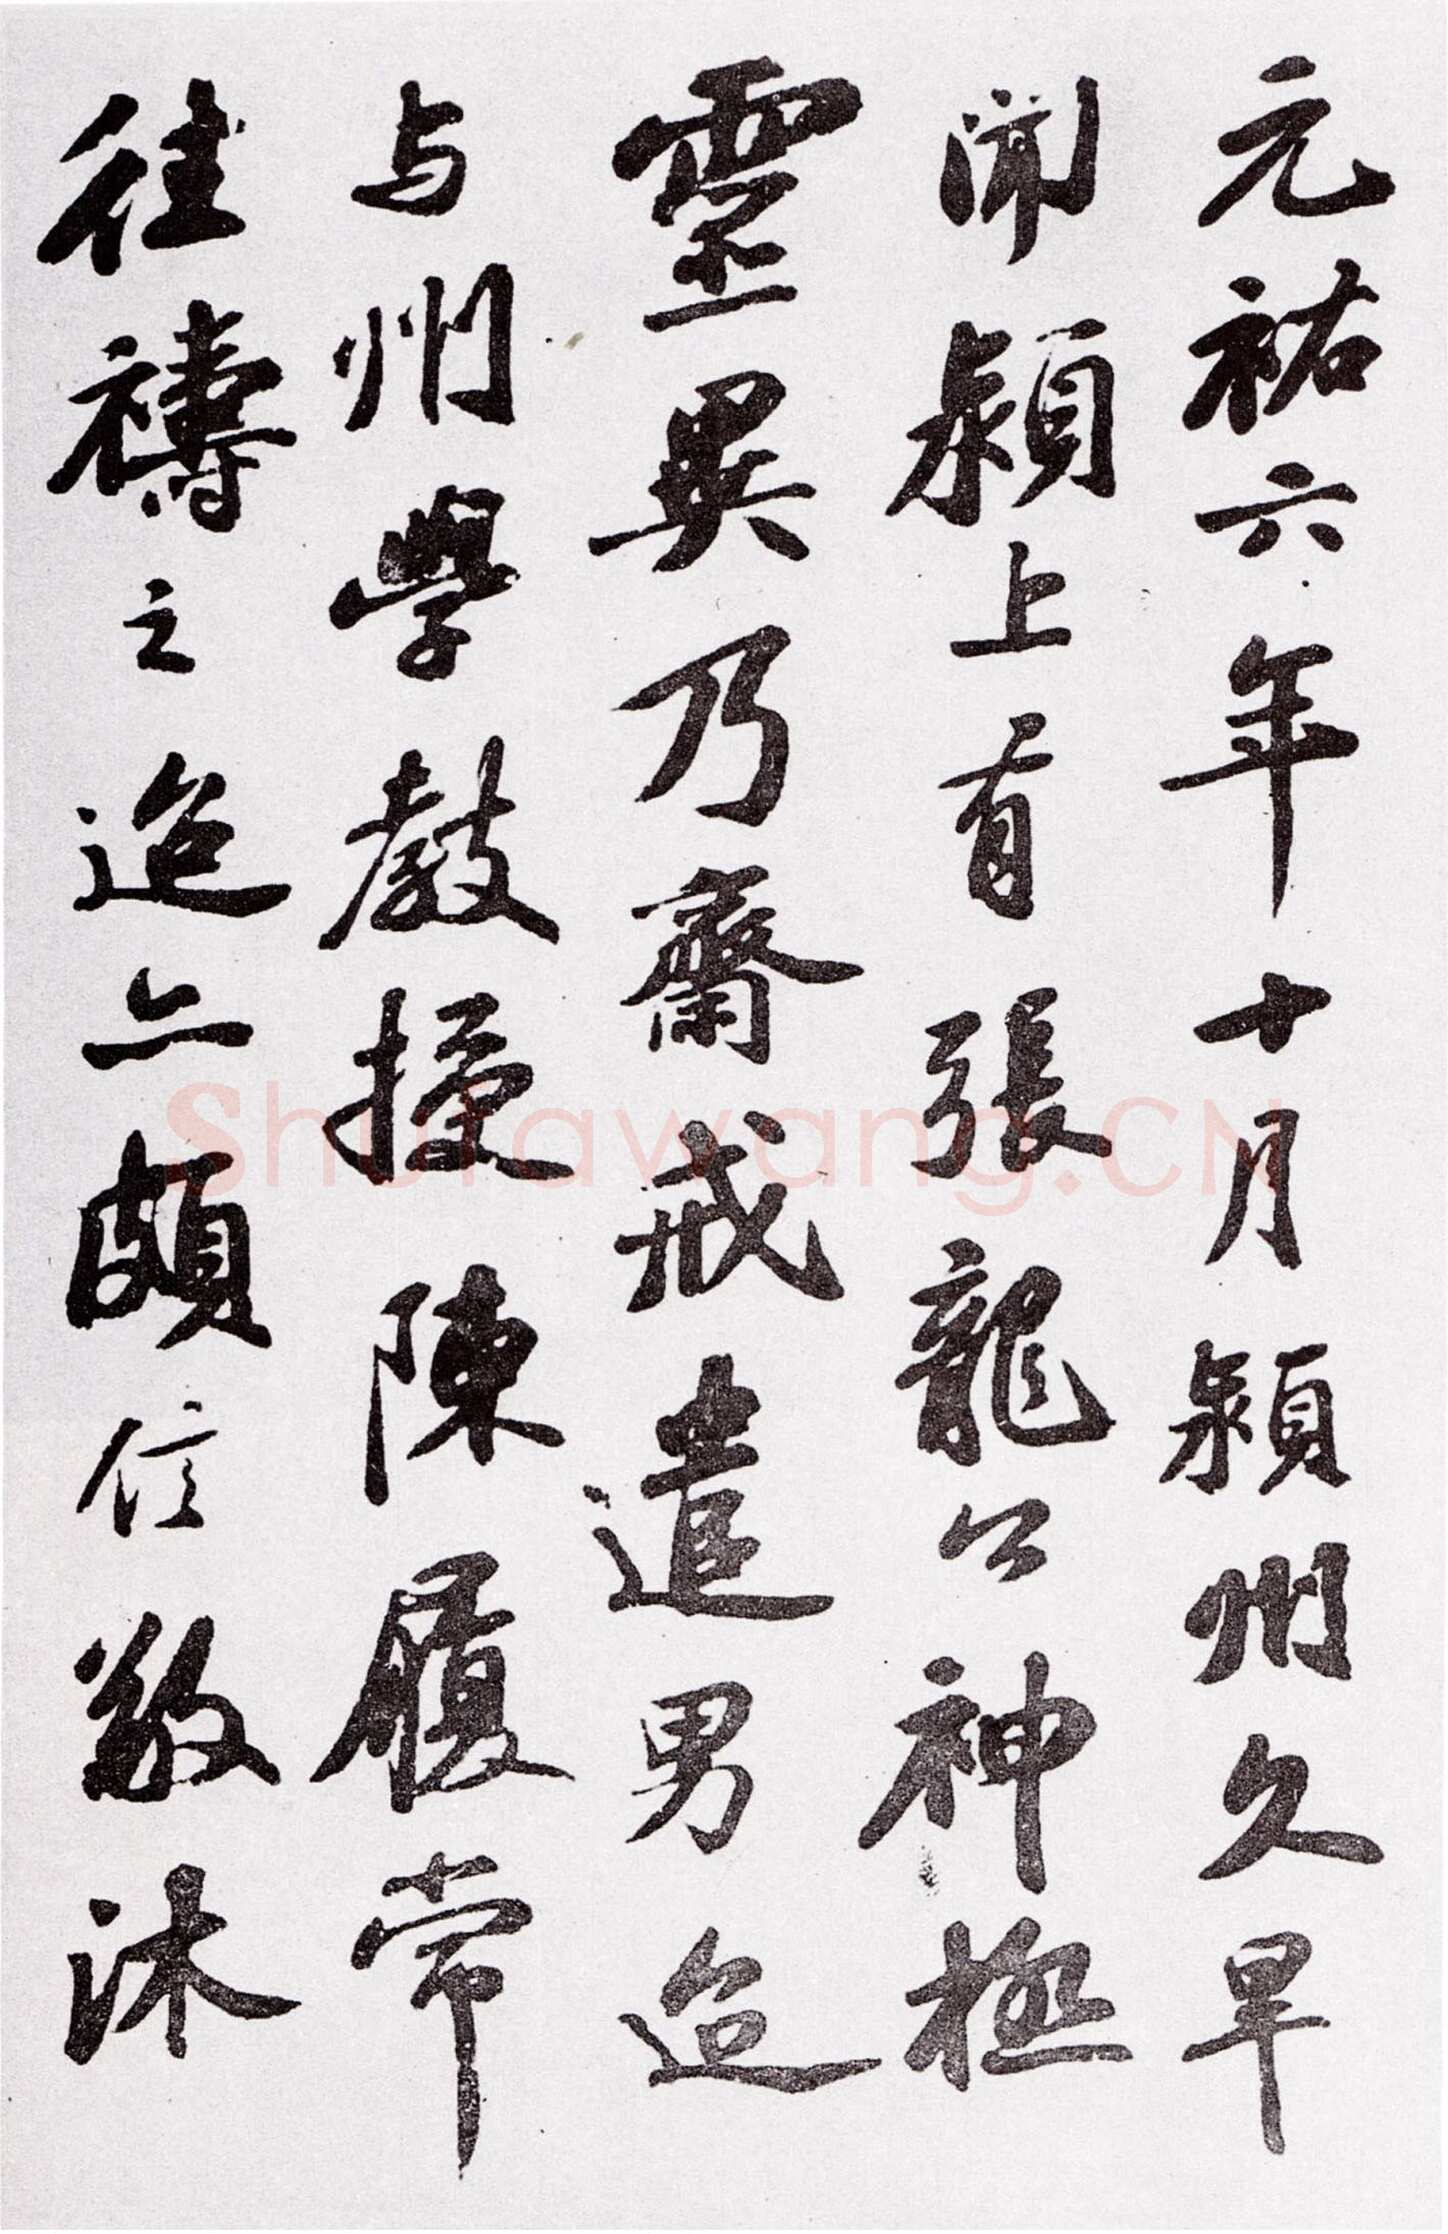 元祐六年十月潁州久旱
聞潁上有張龍公神極
靈異乃齋戒遣男迨
与州學教授陳履常
往禱之迨亦頗信敬沐
Shufawang.CN